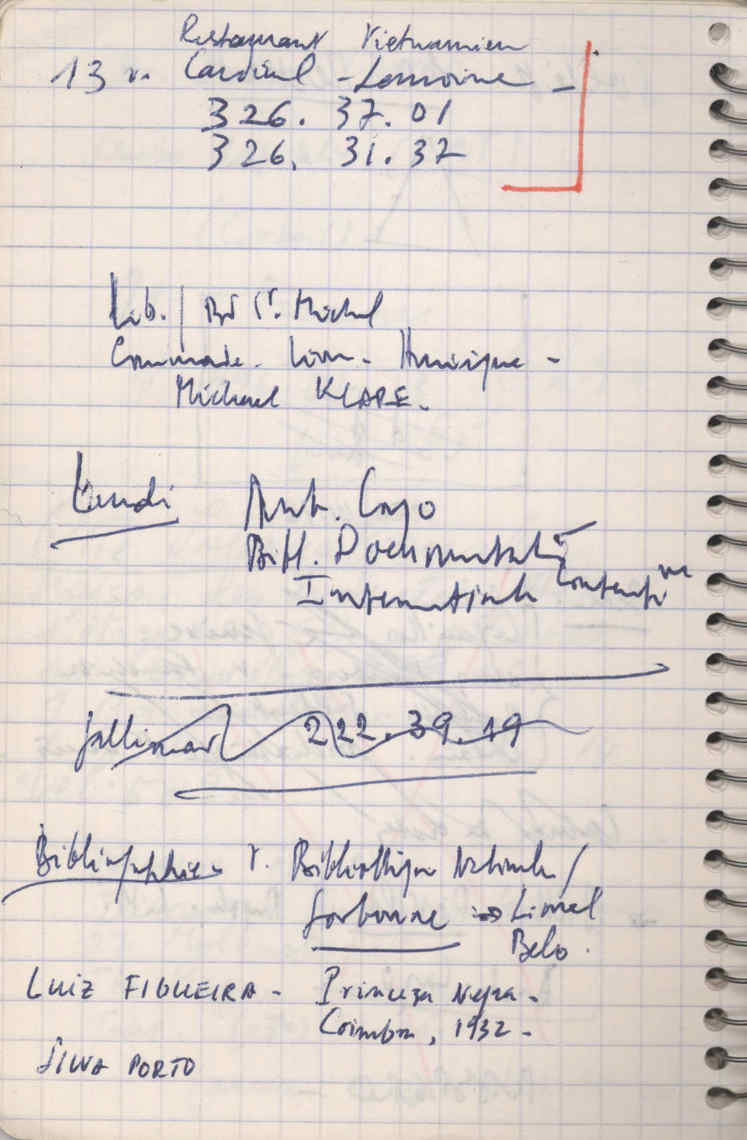 Restaurant Vietnamien
13 r. Cardinal-Lemoine -
326. 37.01
326. 31.37
Lib. / Bd St. Michel
Michael
Lundi
Bibl. Documentation
Internationale Contemp
Gallimard 222.39.19
Bibliographie r. Bibliothèque Nationale /
Sorbonne => Lionel
Belo.
LUIZ FIGUEIRA - Princesa Negra -
Coimbra, 1932 -
SILVA PORTO